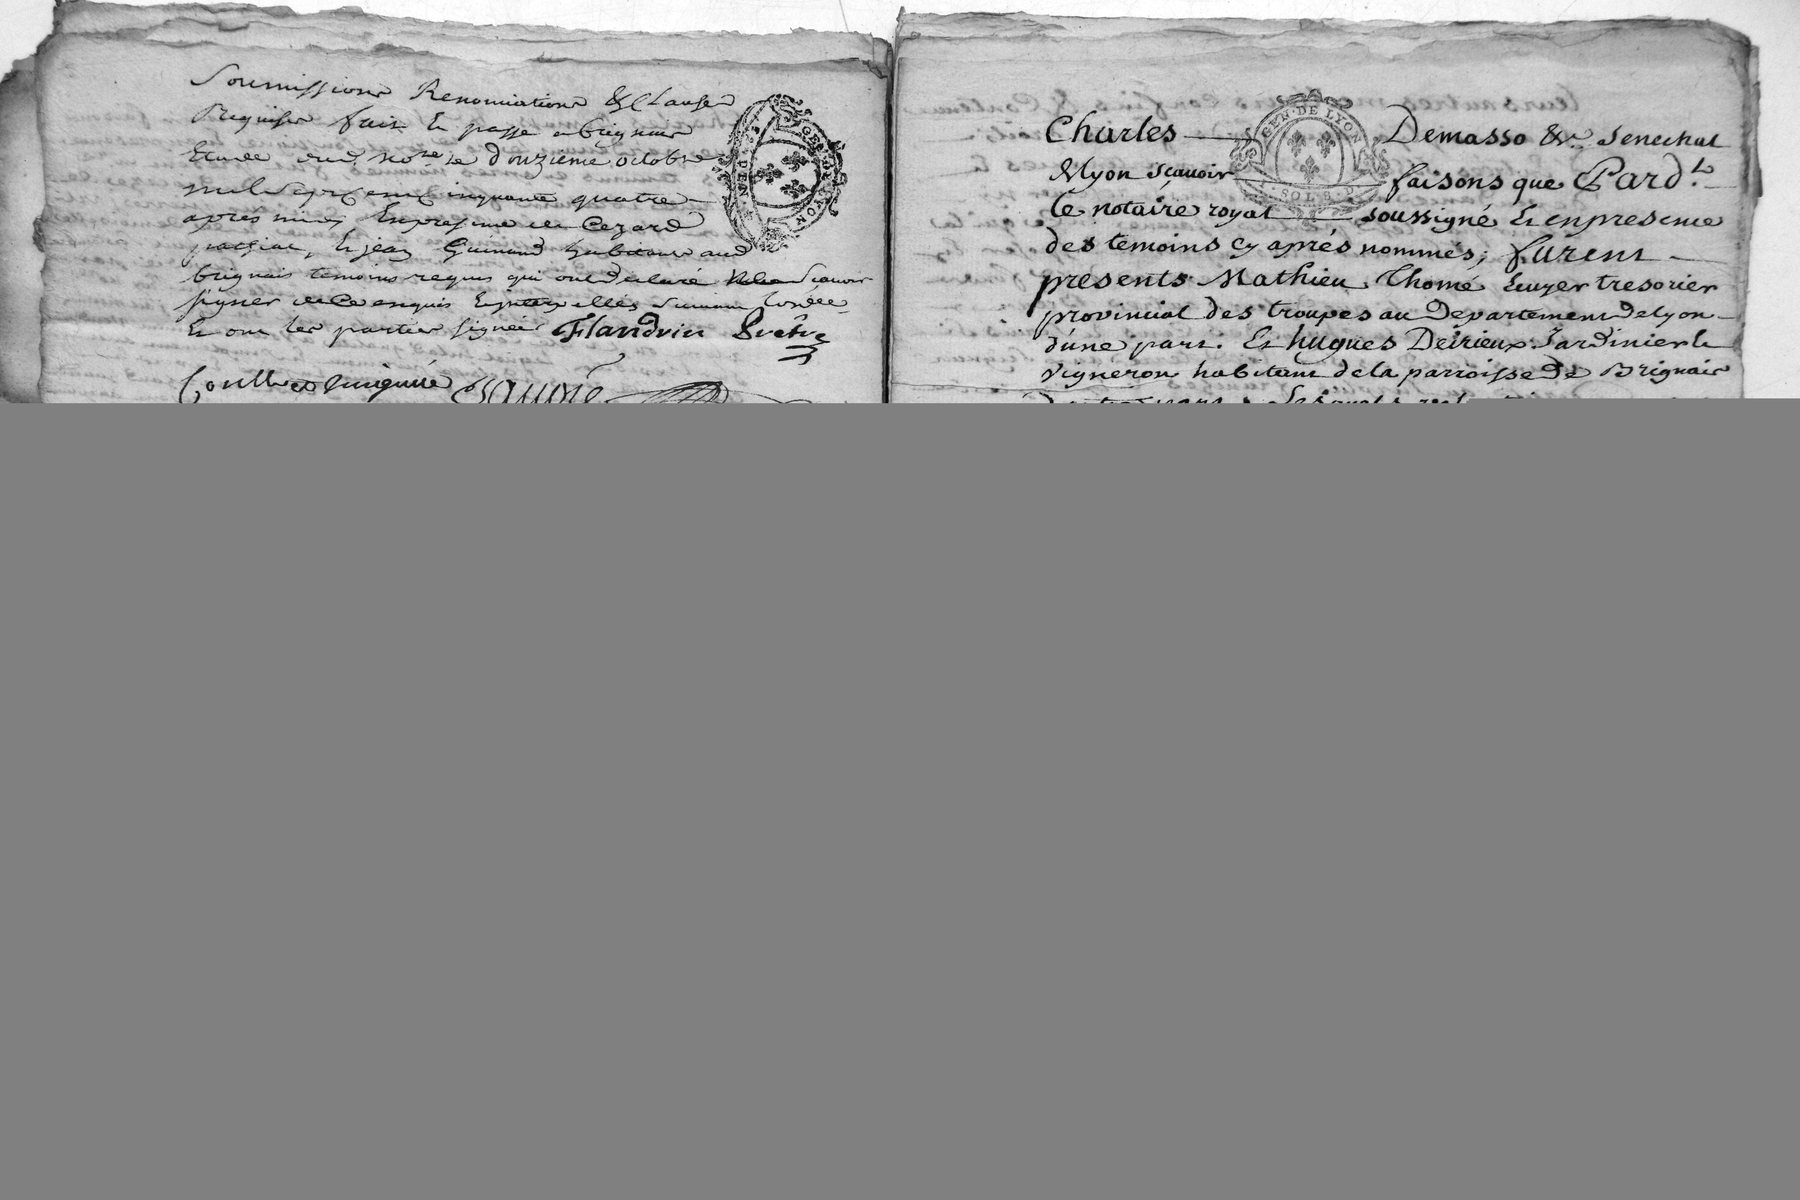 Soumissions Renonciations & Clauses
Requises fait & passé a brignais
Etude dud. no.re le douzieme octobre
mil sept cent cinquante quatre
apres midy En presence de Cezard
Et jean Guinand habitans aud
brignais temoins requis qui ont declaré ne scavoir
signer de ce enquis suivant l'ordce
Et ont les parties signées Flandrin
GEN. DE LYON
Charles Demasso &c. Senechal
Mlyon sçavoir faisons que Pard.t
le notaire royal soussigné Et en presence
des temoins cy aprés nommés; furent
presents Mathieu Thomé Ecuyer tresorier
provincial des troupes au Departement de lyon
d'une part. Et hugues Deirieux Jardinier &
vigneron habitant de la parroisse de Brignais
GEN. DE LYON
SOLS